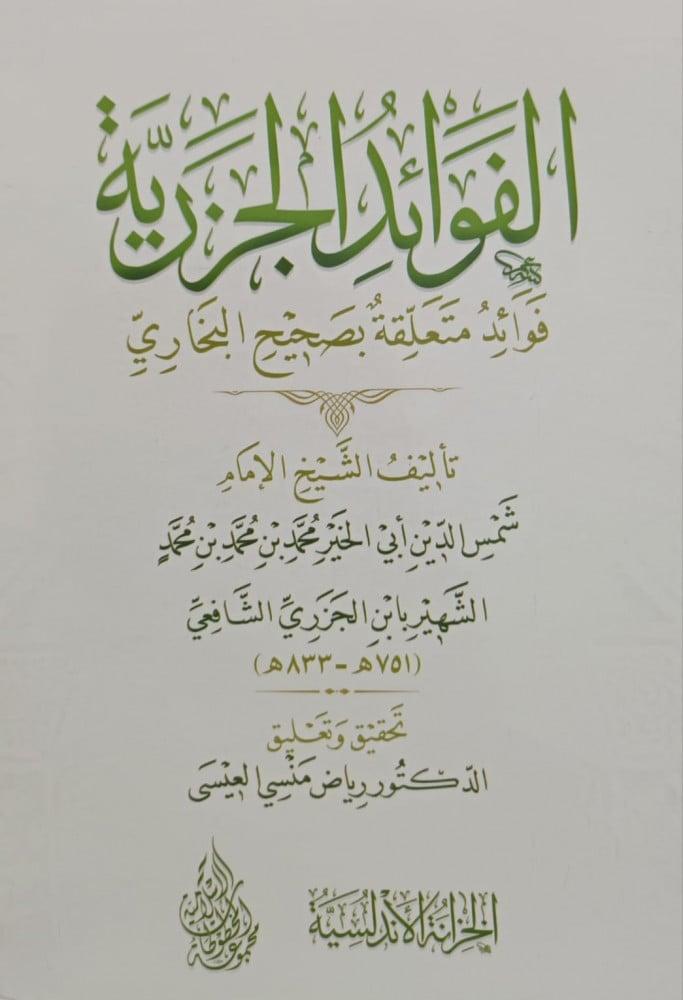 الفَوَائِدُ الجَزَرِيَّة
فَوَائِدُ مُتَعَلِّقَةٌ بِصَحِيْحِ البُخَارِيِّ
تأليْفُ الشَّيْخِ الإمَامِ
شَمْسِ الدِّيْنِ أبِي الخَيْرِ مُحَمَّدِ بْنِ مُحَمَّدِ بْنِ مُحَمَّدٍ
الشَّهِيْرِ بِابْنِ الجَزَرِيِّ الشَّافِعِيِّ
(٧٥١هـ - ٨٣٣هـ)
تَحْقِيْق وَتَعْلِيْق
الدّكتُور رِيَاض مَنْسِي العِيْسَى
الخِزَانَةُ الأَنْدَلُسِيَّةُ
مجموعة المخطوطات الإسلامية